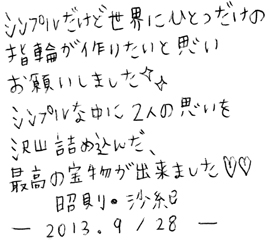 シンプルだけど世界にひとつだけの
指輪が作りたいと思い
お願いしました✧✧
シンプルな中に2人の思いを
沢山詰め込んだ、
最高の宝物が出来ました♡♡
昭則・沙紀
— 2013. 9 / 28 —